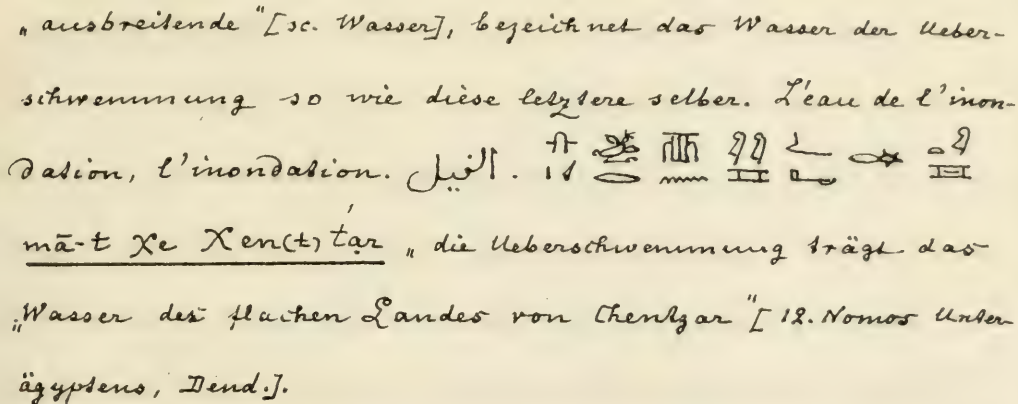 „ausbreitende“ [sc. Wasser], bezeichnet das Wasser der Ueber-
schwemmung so wie diese letztere selber. L'eau de l'inon-
dation, l'inondation.
mā-t χe χen(t) t́ar „die Ueberschwemmung trägt das
„Wasser des flachen Landes von Chentzar“ [12. Nomos Unter-
ägyptens, Dend.].